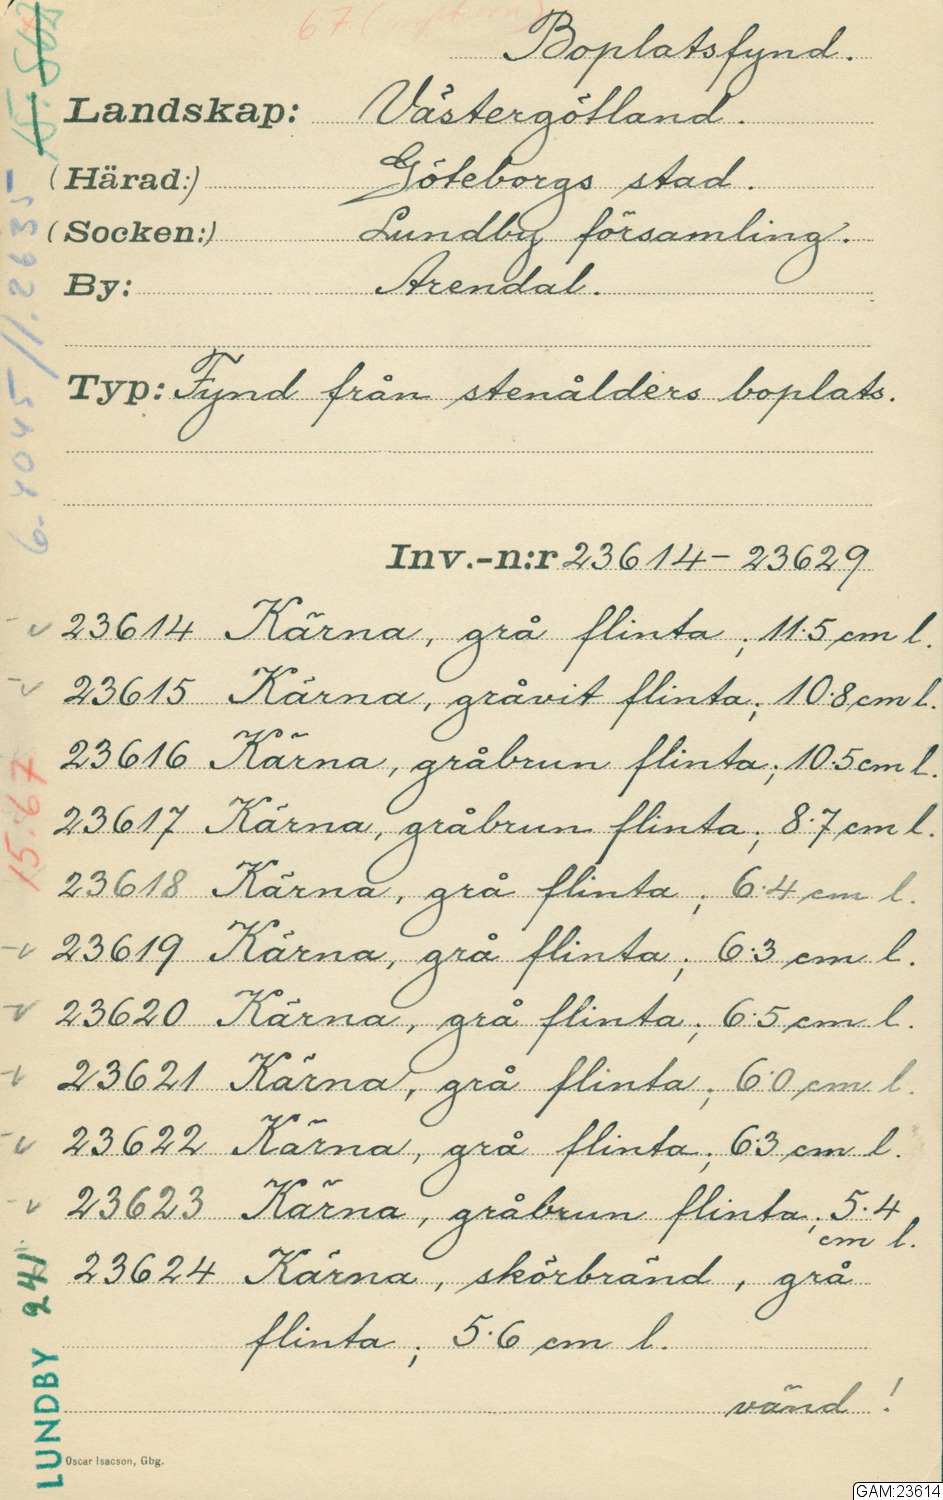 Boplatsfynd.
Landskap: Västergötland.
(Härad:) Göteborgs stad.
(Socken:) Lundby församling.
By: Arendal.
Typ: Fynd från stenålders boplats.
Inv.-n:r 23614-23629
23614 Kärna, grå flinta; 11.5 cm l.
23615 Kärna, gråvit flinta; 10.8 cm l.
23616 Kärna, gråbrun flinta; 10.5 cm l.
23617 Kärna, gråbrun flinta; 8.7 cm l.
23618 Kärna, grå flinta; 6.4 cm l.
23619 Kärna, grå flinta; 6.3 cm l.
23620 Kärna, grå flinta; 6.5 cm l.
23621 Kärna, grå flinta; 6.0 cm l.
23622 Kärna, grå flinta; 6.3 cm l.
23623 Kärna, gråbrun flinta; 5.4
cm l.
23624 Kärna, skörbränd, grå
flinta; 5.6 cm l.
vänd!
Oscar Isacson, Gbg.
15:67
LUNDBY 241
GAM:23614